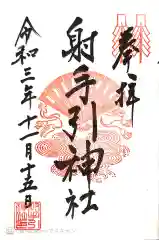 奉拝
射手引神社
令和三年十一月十五日